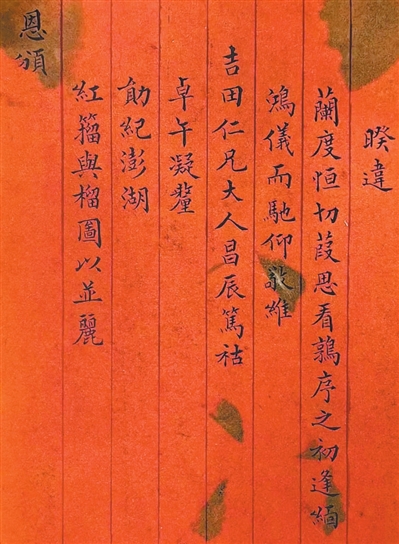 睽違
蘭度恒切葭思看鶉序之初逢緬
鴻儀而馳仰敬維
吉田仁兄大人昌辰篤祜
卓午凝釐
勛紀澎湖
紅籀與榴圖以並麗
恩頒